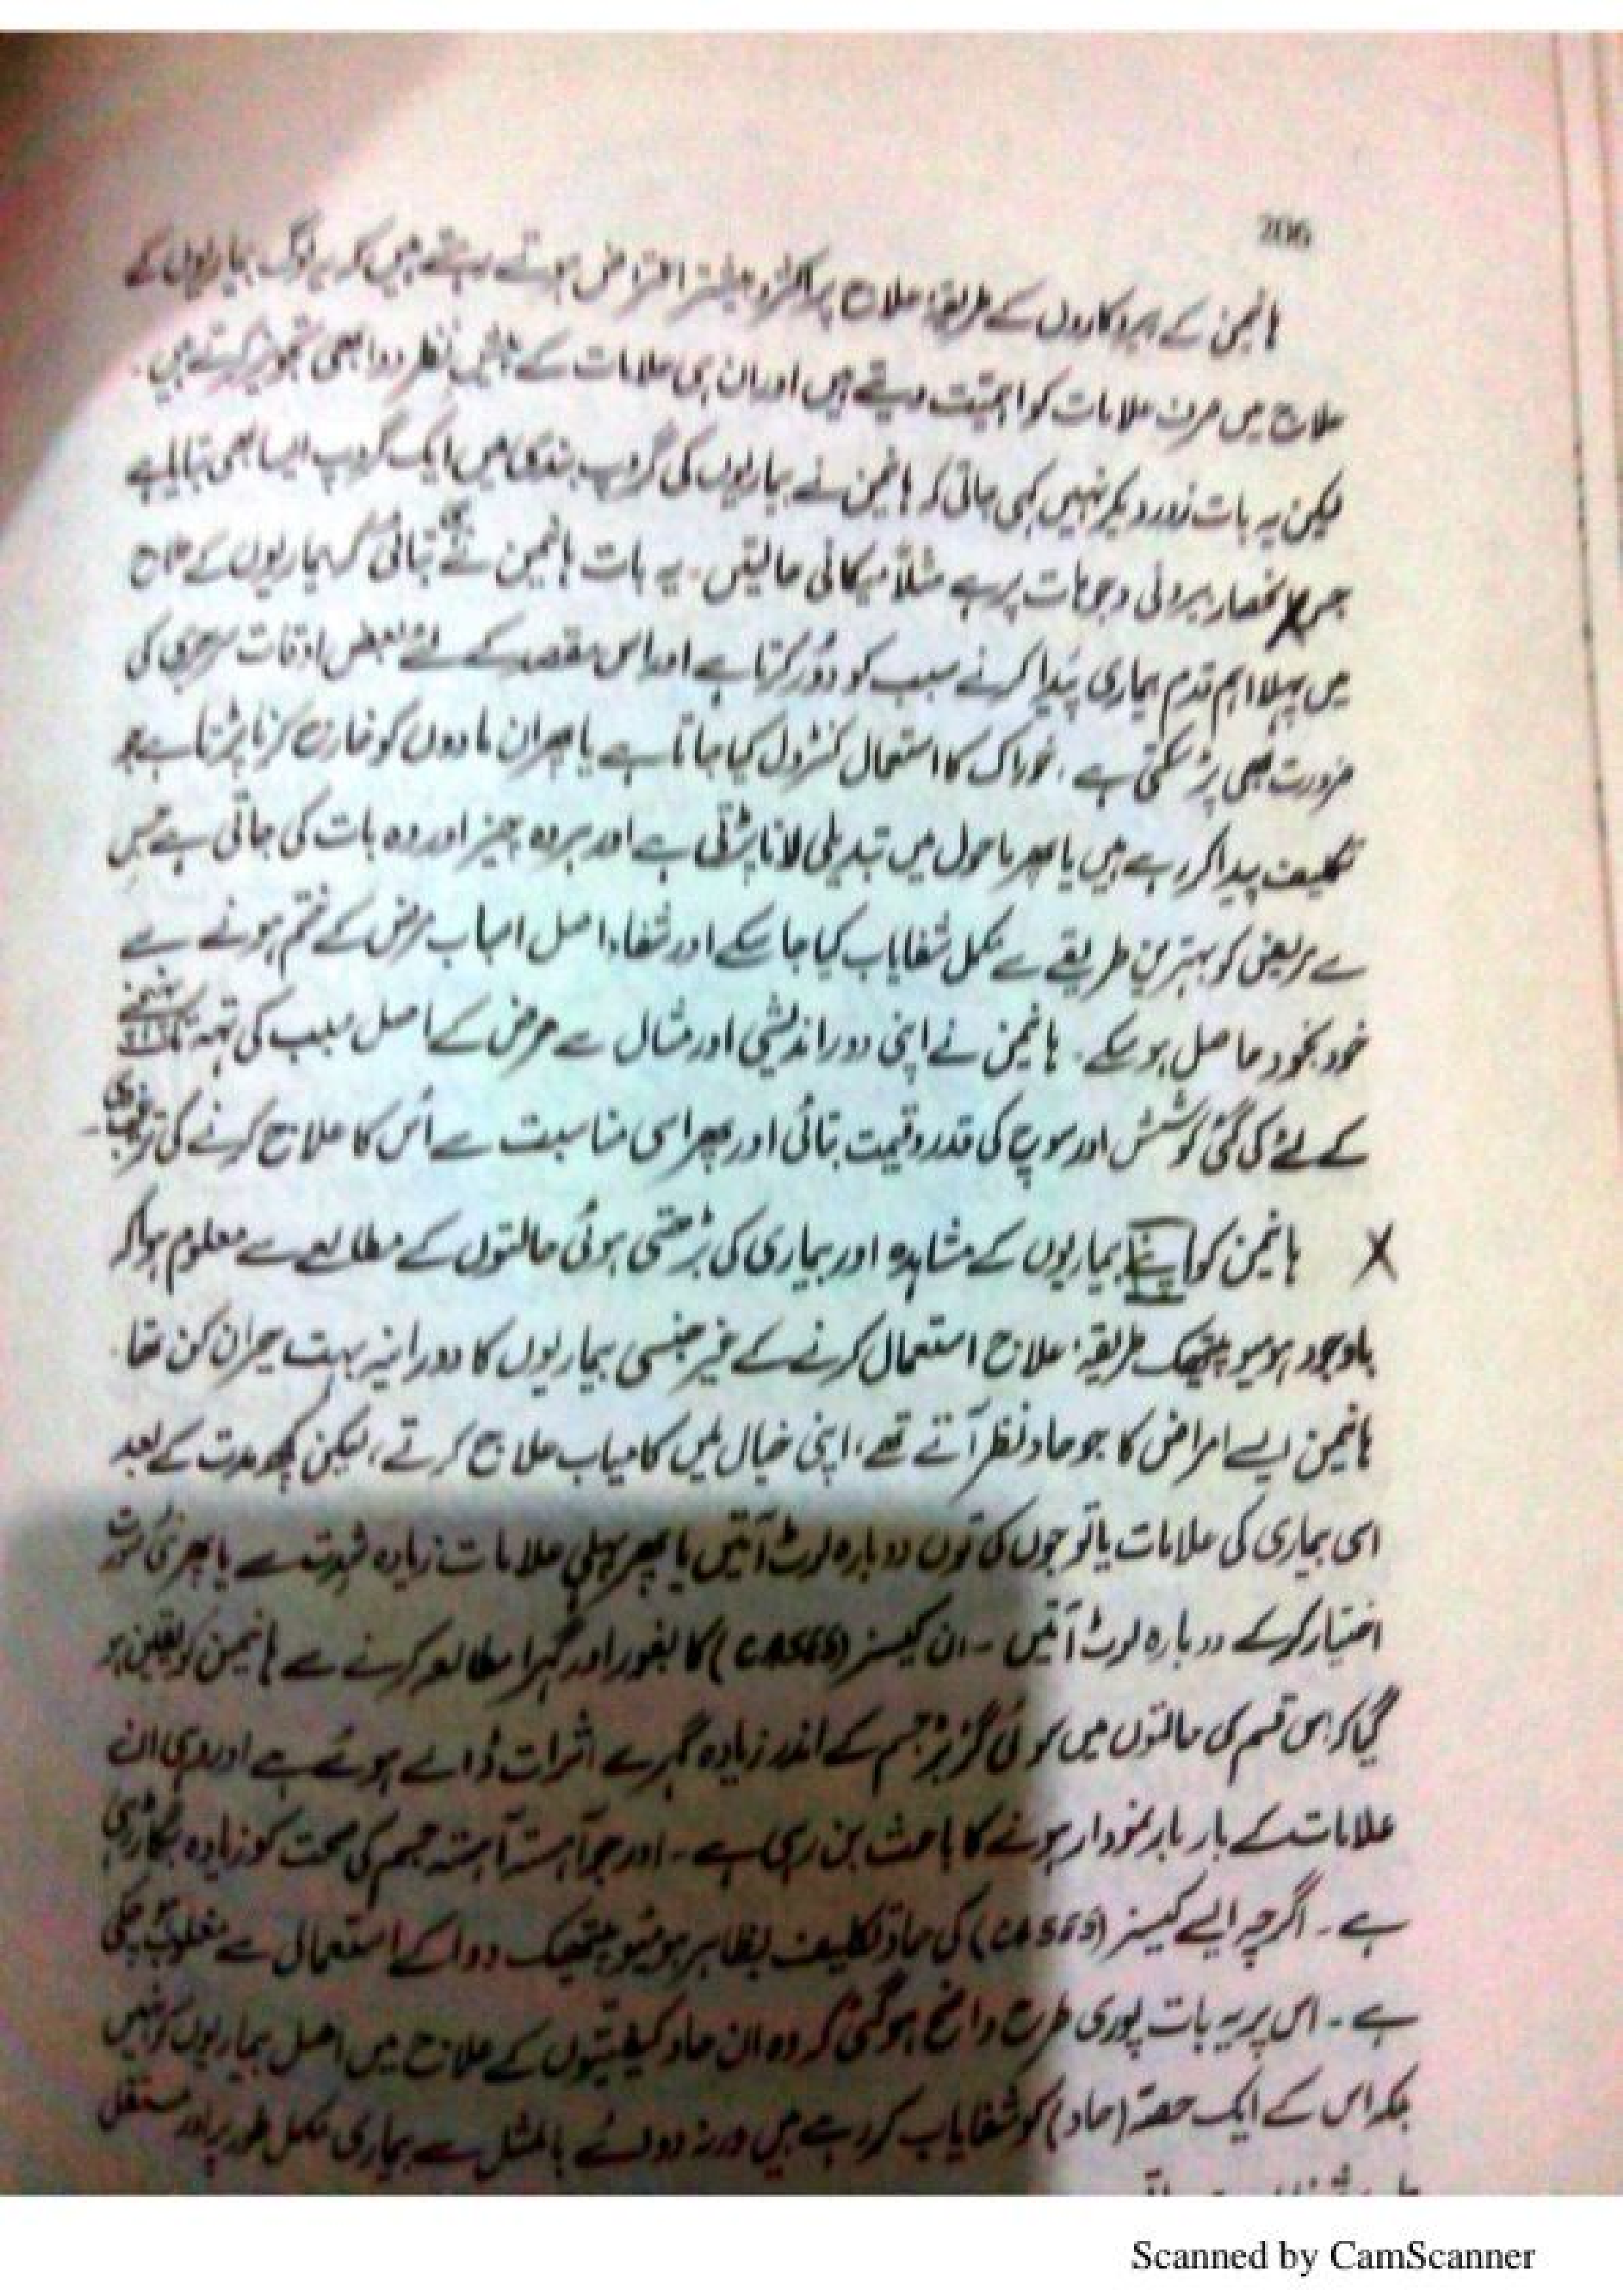 206
ہانیمن کے پیروکاروں کے طریقۂ علاج پر اکثر و بیشتر اعتراض ہوتے رہتے ہیں کہ یہ لوگ بیماریوں کے
علاج میں صرف علامات کو اہمیت دیتے ہیں اور ان ہی علامات کے پیش نظر دوا بھی تجویز کرتے ہیں ۔
لیکن یہ بات زور دیکر نہیں کہی جاتی کہ ہانیمن نے بیماریوں کی گروپ بندی میں ایک گروپ ایسا بھی بتایا ہے
جس کا انحصار بیرونی وجوہات پر ہے مثلاً میکانی حالتیں ۔ یہ بات ہانیمن نے ہی بتائی کہ بیماریوں کے علاج
میں پہلا اہم قدم بیماری پیدا کرنے سبب کو دُور کرنا ہے اور اس مقصد کے لئے بعض اوقات سرجری کی
ضرورت بھی پڑ سکتی ہے ، خوراک کا استعمال کنٹرول کیا جاتا ہے یا پھر ان مادوں کو خارج کرنا پڑتا ہے جو
تکلیف پیدا کر رہے ہیں یا پھر ماحول میں تبدیلی لانا پڑتی ہے اور ہر وہ چیز اور وہ بات کی جاتی ہے جس
سے مریض کو بہترین طریقے سے مکمل شفایاب کیا جا سکے اور شفاء اصل اسباب مرض کے ختم ہونے سے
خود بخود حاصل ہو سکے ۔ ہانیمن نے اپنی دور اندیشی اور مثال سے مرض کے اصل سبب کی تہہ تک پہنچنے
کے لئے کی گئی کوشش اور سوچ کی قدر و قیمت بتائی اور پھر اسی مناسبت سے اُس کا علاج کرنے کی ترغیب دی
X ہانیمن کو اپنے بیماریوں کے مشاہدہ اور بیماری کی بڑھتی ہوئی حالتوں کے مطالعے سے معلوم ہوا کہ
باوجود ہومیوپیتھک طریقۂ علاج استعمال کرنے کے غیر جنسی بیماریوں کا دورانیہ بہت حیران کن تھا
ہانیمن ایسے امراض کا جو حاد نظر آتے تھے ، اپنی خیال میں کامیاب علاج کرتے ، لیکن کچھ مدت کے بعد
اسی بیماری کی علامات یا تو جوں کی توں دوبارہ لوٹ آتیں یا پھر پہلی علامات زیادہ شدت سے یا پھر نئی صورت
اختیار کرکے دوبارہ لوٹ آتیں ۔ ان کیسز (CASES) کا بغور اور گہرا مطالعہ کرنے سے ہانیمن کو یقین ہو
گیا کہ اس قسم کی حالتوں میں کوئی گڑبڑ جسم کے اندر زیادہ گہرے اثرات ڈالے ہوئے ہے اور وہی ان
علامات کے بار بار نمودار ہونے کا باعث بن رہی ہے ۔ اور جو آہستہ آہستہ جسم کی صحت کو زیادہ بگاڑ رہی
ہے ۔ اگرچہ ایسے کیسز (CASES) کی حاد تکلیف بظاہر ہومیوپیتھک دوا کے استعمال سے مغلوب ہو چکی
ہے ۔ اس پر یہ بات پوری طرح واضح ہو گئی کہ وہ ان حاد کیفیتوں کے علاج میں اصل بیماریوں کو نہیں
بلکہ اس کے ایک حصہ (حاد) کو شفایاب کر رہے ہیں ورنہ دوائے بالمثل سے بیماری مکمل طور پر اور مستقل
Scanned by CamScanner